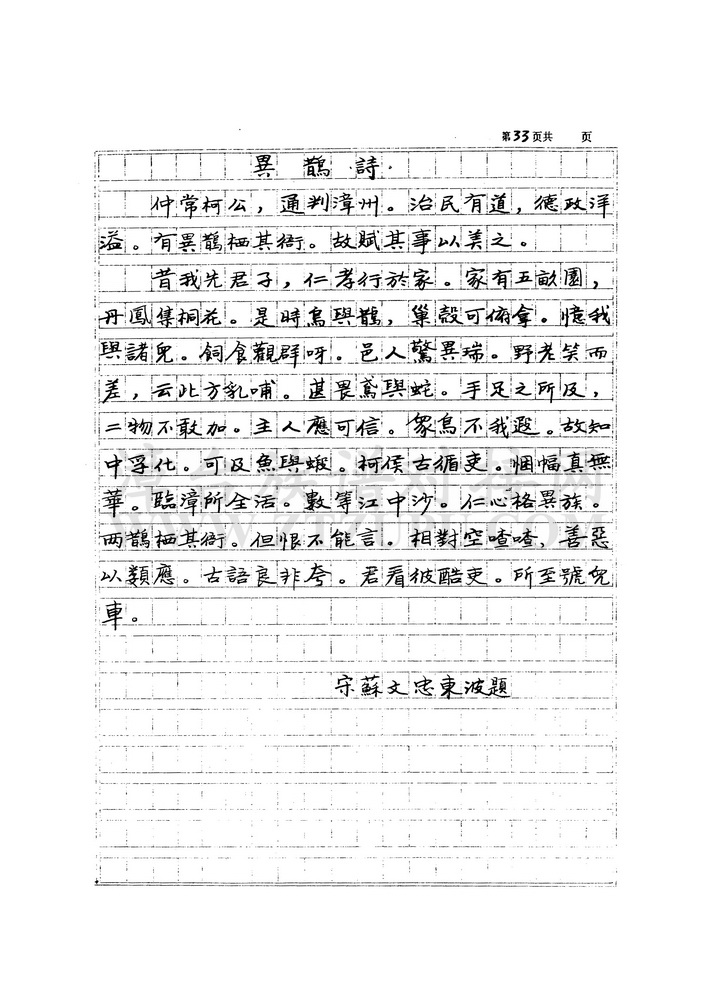 第33页共 页
異鵲詩.
仲常柯公，通判漳州。治民有道，德政洋
溢。有異鵲栖其衙。故賦其事以美之。
昔我先君子，仁孝行於家。家有五畝園，
丹鳳集桐花。是時鳥與鵲，巢鷇可俯拿。憶我
與諸兒。飼食觀群呀。邑人驚異瑞。野老笑而
差，云此方乳哺。甚畏鳶與蛇。手足之所及，
二物不敢加。主人應可信。衆鳥不我遐。故知
中孚化。可及魚與蝦。柯侯古循吏。悃幅真無
華。臨漳所全活。數等江中沙。仁心格異族。
两鵲栖其衙。但恨不能言。相對空喳喳，善惡
以類應。古語良非夸。君看彼酷吏。所至號鬼
車。
宋蘇文忠東波題
WWW.ZTZUPU.COM